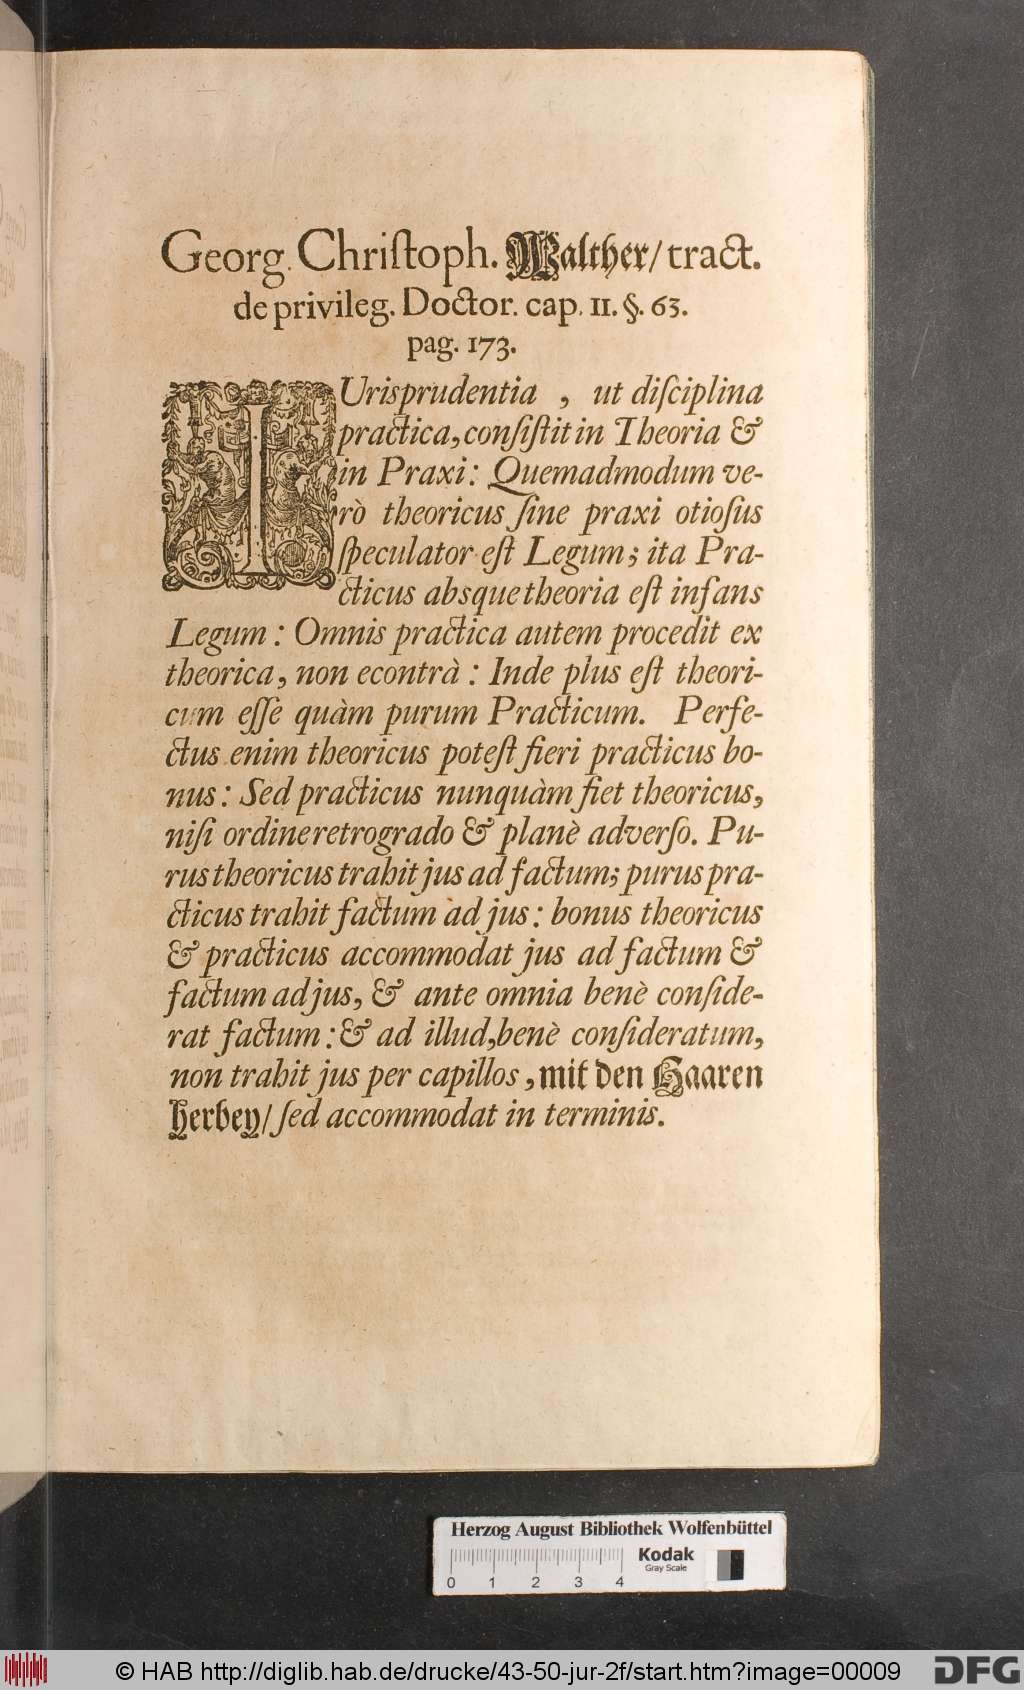 Georg. Chriſtoph. Walther/ tract.
de privileg. Doctor. cap. II. §. 63.
pag. 173.
IUrisprudentia, ut diſciplina
practica, conſiſtit in Theoria &
in Praxi: Quemadmodum ve-
rò theoricus ſine praxi otioſus
ſpeculator eſt Legum; ita Pra-
cticus absque theoria eſt infans
Legum: Omnis practica autem procedit ex
theorica, non econtrà: Inde plus eſt theori-
cum eſſe quàm purum Practicum. Perfe-
ctus enim theoricus poteſt fieri practicus bo-
nus: Sed practicus nunquàm fiet theoricus,
niſi ordine retrogrado & planè adverſo. Pu-
rus theoricus trahit jus ad factum; purus pra-
cticus trahit factum ad jus: bonus theoricus
& practicus accommodat jus ad factum &
factum ad jus, & ante omnia benè conſide-
rat factum: & ad illud, benè conſideratum,
non trahit jus per capillos, mit den Haaren
herbey/ ſed accommodat in terminis.
Herzog August Bibliothek Wolfenbüttel
Kodak
Gray Scale
0 1 2 3 4
© HAB http://diglib.hab.de/drucke/43-50-jur-2f/start.htm?image=00009
DFG